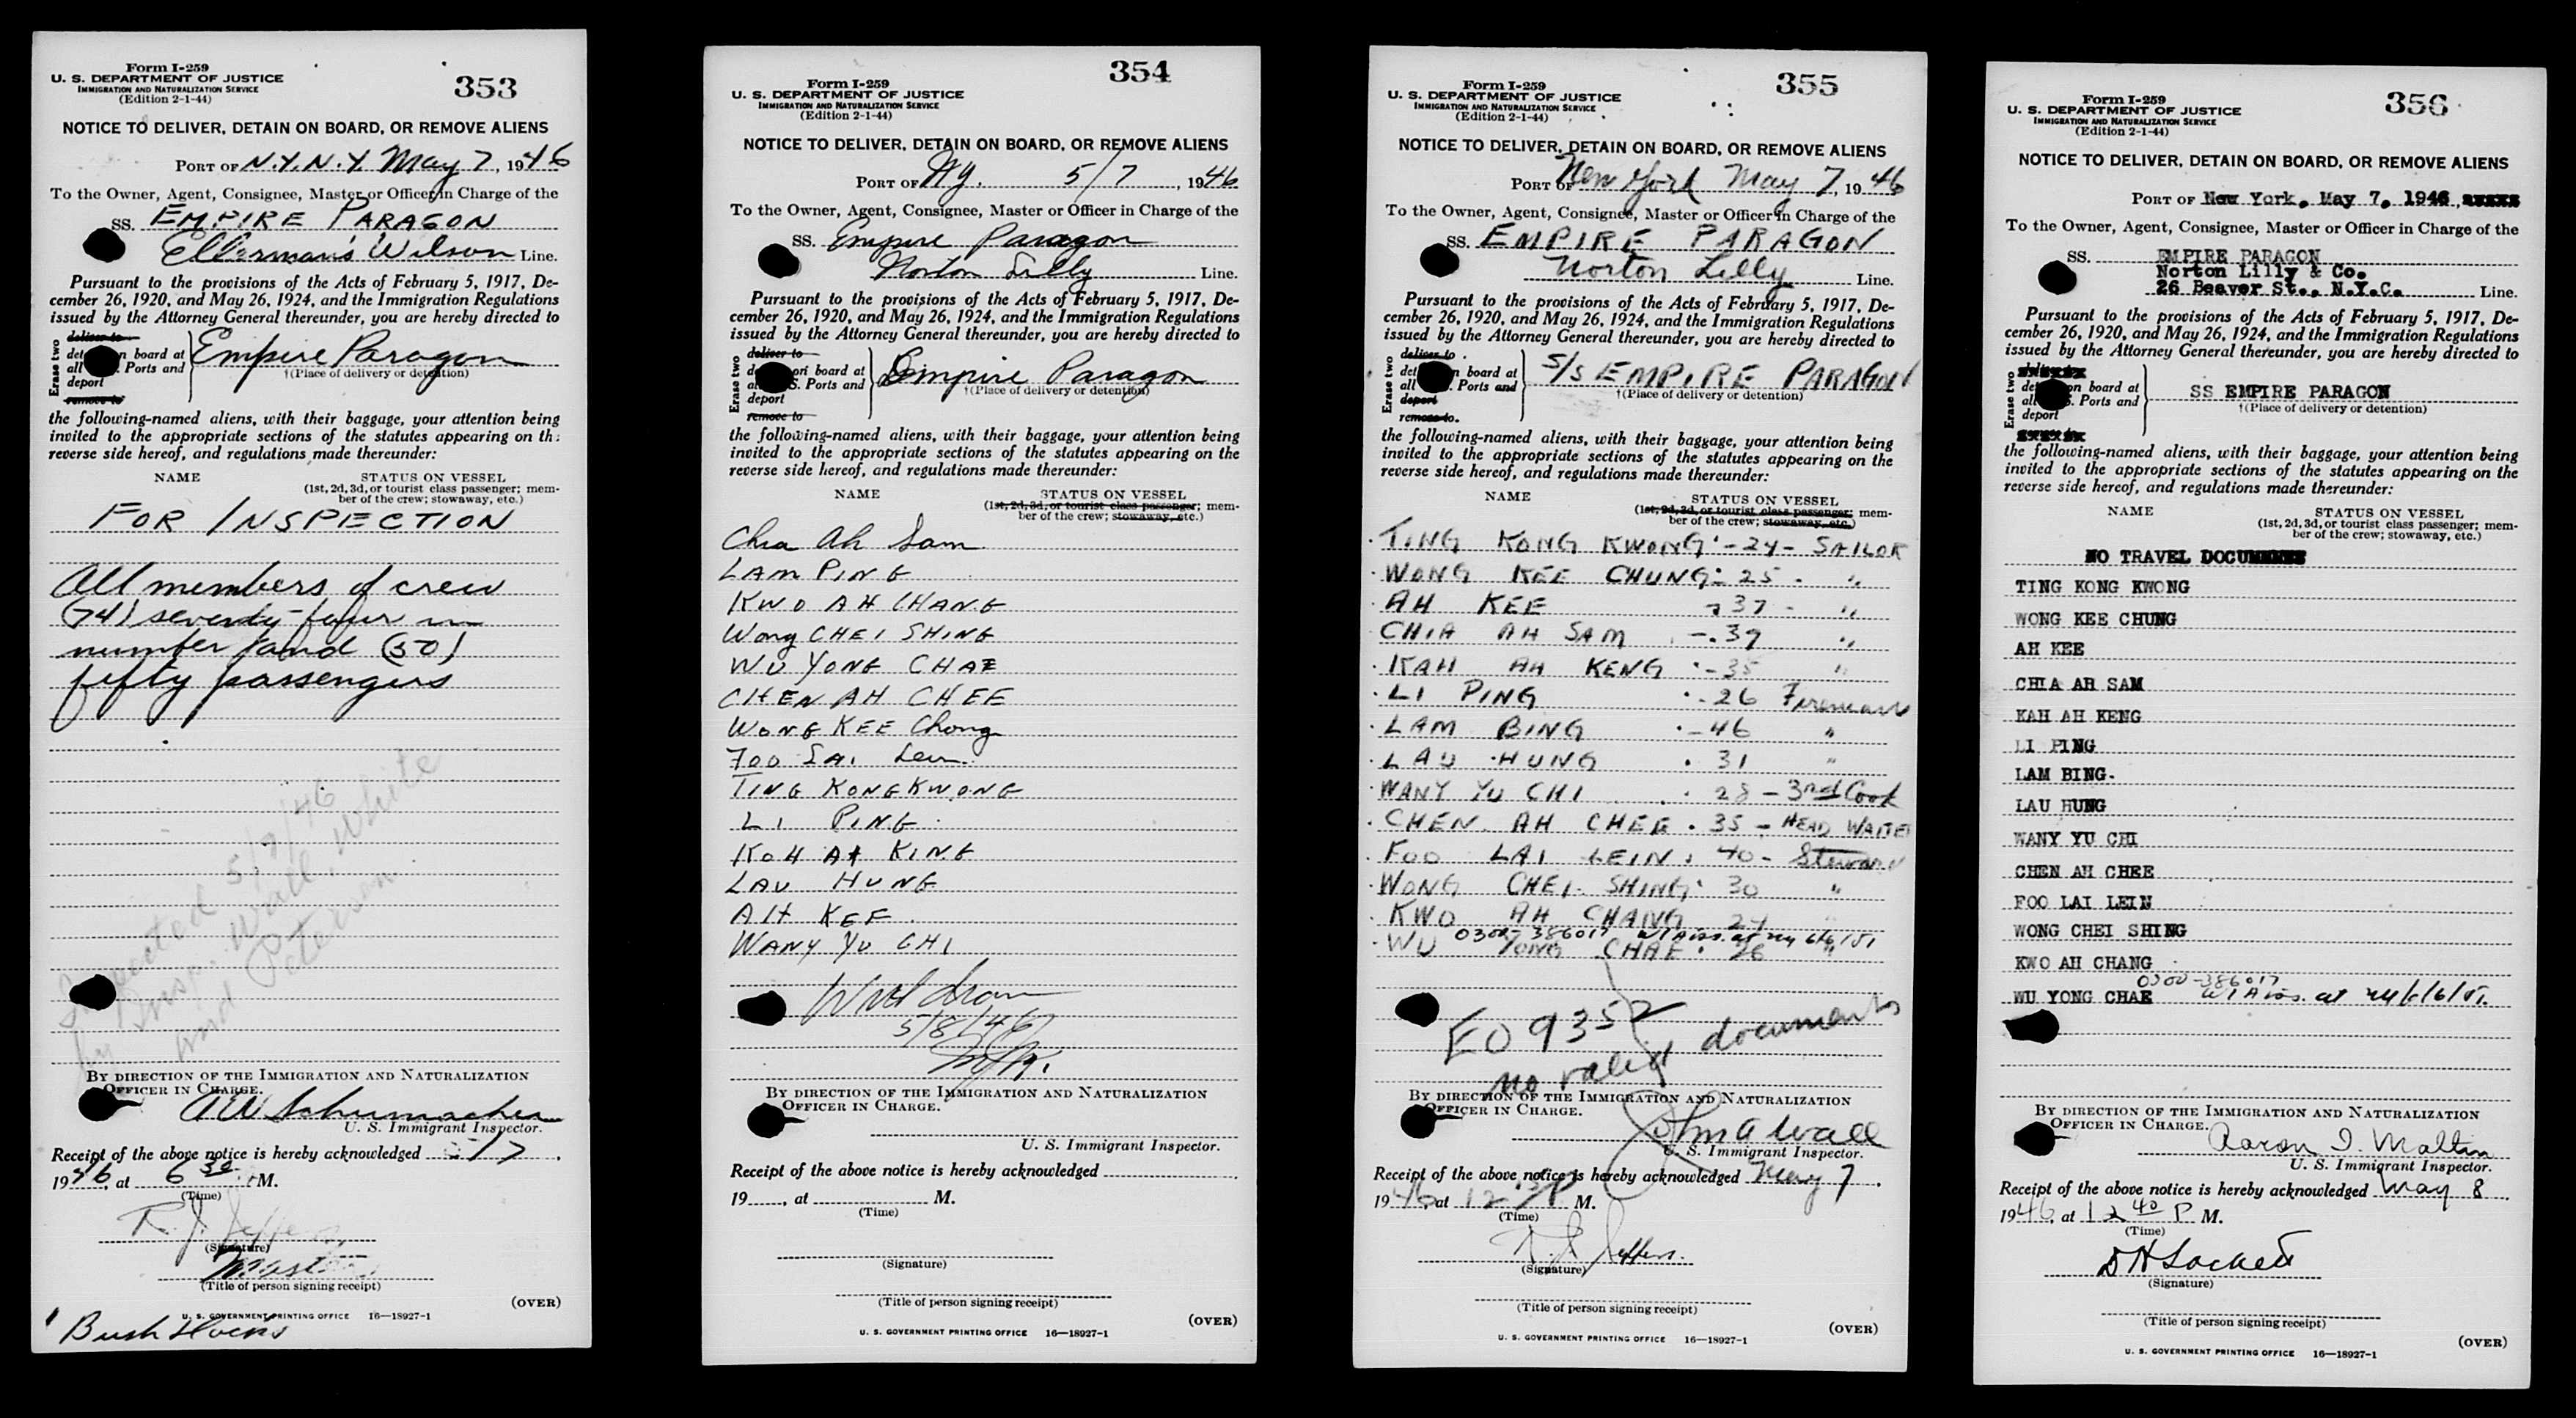 Form I-259
U. S. DEPARTMENT OF JUSTICE
IMMIGRATION AND NATURALIZATION SERVICE
(Edition 2-1-44)
353
NOTICE TO DELIVER, DETAIN ON BOARD, OR REMOVE ALIENS
PORT OF N.Y.N.Y. May 7, 1946
To the Owner, Agent, Consignee, Master or Officer in Charge of the
SS. EMPIRE PARAGON
Ellerman's Wilson Line.
Pursuant to the provisions of the Acts of February 5, 1917, De-
cember 26, 1920, and May 26, 1924, and the Immigration Regulations
issued by the Attorney General thereunder, you are hereby directed to
Erase two
deliver to
det n board at
all . Ports and
deport
remove to
Empire Paragon
†(Place of delivery or detention)
the following-named aliens, with their baggage, your attention being
invited to the appropriate sections of the statutes appearing on th
reverse side hereof, and regulations made thereunder:
NAME STATUS ON VESSEL
(1st, 2d, 3d, or tourist class passenger; mem-
ber of the crew; stowaway, etc.)
FOR INSPECTION
All members of crew
(74) seventy-four in
number and (50)
fifty passengers
5/7/46
by Insp. Wall, White
and Petersen
BY DIRECTION OF THE IMMIGRATION AND NATURALIZATION
OFFICER IN CHARGE.
A W Schumacher
U. S. Immigrant Inspector.
Receipt of the above notice is hereby acknowledged 5/7.
1946, at 6 30 M.
(Time)
R. J. Jeffers
(Signature)
Master
(Title of person signing receipt)
(OVER)
U. S. GOVERNMENT PRINTING OFFICE 16—18927-1
Bush Docks
Form I-259
U. S. DEPARTMENT OF JUSTICE
IMMIGRATION AND NATURALIZATION SERVICE
(Edition 2-1-44)
354
NOTICE TO DELIVER, DETAIN ON BOARD, OR REMOVE ALIENS
PORT OF NY. 5/7, 1946
To the Owner, Agent, Consignee, Master or Officer in Charge of the
SS. Empire Paragon
Norton Lilly Line.
Pursuant to the provisions of the Acts of February 5, 1917, De-
cember 26, 1920, and May 26, 1924, and the Immigration Regulations
issued by the Attorney General thereunder, you are hereby directed to
Erase two
deliver to
d on board at
a S. Ports and
deport
remove to
Empire Paragon
†(Place of delivery or detention)
the following-named aliens, with their baggage, your attention being
invited to the appropriate sections of the statutes appearing on the
reverse side hereof, and regulations made thereunder:
NAME STATUS ON VESSEL
(1st, 2d, 3d, or tourist class passenger; mem-
ber of the crew; stowaway, etc.)
Chia Ah Sam
LAM PING
KWO AH CHANG
Wong CHEI SHING
WU YONG CHAE
CHEN AH CHEE
WONG KEE Chong
FOO LAI Lein
TING KONG KWONG
LI PING
KOH AH KING
LAU HUNG
AH KEE
WANY YU CHI
5/8/46
BY DIRECTION OF THE IMMIGRATION AND NATURALIZATION
OFFICER IN CHARGE.
U. S. Immigrant Inspector.
Receipt of the above notice is hereby acknowledged
19, at M.
(Time)
(Signature)
(Title of person signing receipt)
(OVER)
U. S. GOVERNMENT PRINTING OFFICE 16—18927-1
Form I-259
U. S. DEPARTMENT OF JUSTICE
IMMIGRATION AND NATURALIZATION SERVICE
(Edition 2-1-44)
355
NOTICE TO DELIVER, DETAIN ON BOARD, OR REMOVE ALIENS
PORT OF New York May 7, 1946
To the Owner, Agent, Consignee, Master or Officer in Charge of the
SS. EMPIRE PARAGON
Norton Lilly Line.
Pursuant to the provisions of the Acts of February 5, 1917, De-
cember 26, 1920, and May 26, 1924, and the Immigration Regulations
issued by the Attorney General thereunder, you are hereby directed to
Erase two
deliver to
det n board at
all Ports and
deport
remove to.
S/S EMPIRE PARAGON
†(Place of delivery or detention)
the following-named aliens, with their baggage, your attention being
invited to the appropriate sections of the statutes appearing on the
reverse side hereof, and regulations made thereunder:
NAME STATUS ON VESSEL
(1st, 2d, 3d, or tourist class passenger; mem-
ber of the crew; stowaway, etc.)
TING KONG KWONG - 24 - SAILOR
WONG KEE CHUNG - 25 - "
AH KEE - 37 - "
CHIA AH SAM - 39 "
KAH AH KENG - 35 "
LI PING - 26 Fireman
LAM BING - 46 "
LAU HUNG 31 "
WANY YU CHI 28 - 3rd Cook
CHEN AH CHEE 35 - HEAD WAITER
FOO LAI LEIN 40 - Steward
WONG CHEI SHING 30 "
KWO AH CHANG 24 "
0300-386017 at NY 6/6/51
WU YONG CHAE 26 "
EO 9352
no valid documents
BY DIRECTION OF THE IMMIGRATION AND NATURALIZATION
OFFICER IN CHARGE.
John A Wall
U. S. Immigrant Inspector.
Receipt of the above notice is hereby acknowledged May 7.
1946, at 12 P M.
(Time)
R. J. Jeffers.
(Signature)
(Title of person signing receipt)
(OVER)
U. S. GOVERNMENT PRINTING OFFICE 16—18927-1
Form I-259
U. S. DEPARTMENT OF JUSTICE
IMMIGRATION AND NATURALIZATION SERVICE
(Edition 2-1-44)
356
NOTICE TO DELIVER, DETAIN ON BOARD, OR REMOVE ALIENS
PORT OF New York, May 7, 1946,
To the Owner, Agent, Consignee, Master or Officer in Charge of the
SS. EMPIRE PARAGON
Norton Lilly & Co.
26 Beaver St., N.Y.C. Line.
Pursuant to the provisions of the Acts of February 5, 1917, De-
cember 26, 1920, and May 26, 1924, and the Immigration Regulations
issued by the Attorney General thereunder, you are hereby directed to
Erase two
det on board at
all S. Ports and
deport
SS EMPIRE PARAGON
†(Place of delivery or detention)
the following-named aliens, with their baggage, your attention being
invited to the appropriate sections of the statutes appearing on the
reverse side hereof, and regulations made thereunder:
NAME STATUS ON VESSEL
(1st, 2d, 3d, or tourist class passenger; mem-
ber of the crew; stowaway, etc.)
NO TRAVEL DOCUMENTS
TING KONG KWONG
WONG KEE CHUNG
AH KEE
CHIA AH SAM
KAH AH KENG
LI PING
LAM BING.
LAU HUNG
WANY YU CHI
CHEN AH CHEE
FOO LAI LEIN
WONG CHEI SHING
KWO AH CHANG
0300-386017
WU YONG CHAE at NY 6/6/51.
BY DIRECTION OF THE IMMIGRATION AND NATURALIZATION
OFFICER IN CHARGE.
Aaron I. Maltin
U. S. Immigrant Inspector.
Receipt of the above notice is hereby acknowledged May 8.
1946, at 12 40 P M.
(Time)
D H Lockett
(Signature)
(Title of person signing receipt)
(OVER)
U. S. GOVERNMENT PRINTING OFFICE 16—18927-1